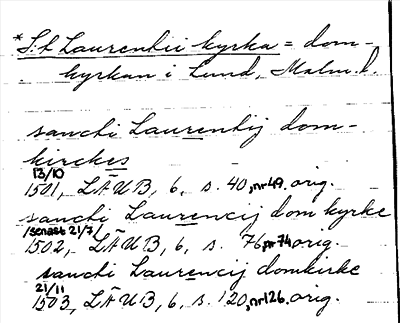 *S:t Laurentii kyrka = dom-
kyrkan i Lund, Malm. l.
sancti Laurentij dom-
kirckes
13/10
1501, LÄUB, 6, s. 40, nr 49. orig.
sancti Laurencij domkyrke
/senast 21/7/
1502, LÄUB, 6, s. 76, nr 74 orig.
sancti Laurencij domkirke
21/11
1503, LÄUB, 6, s. 120, nr 126. orig.